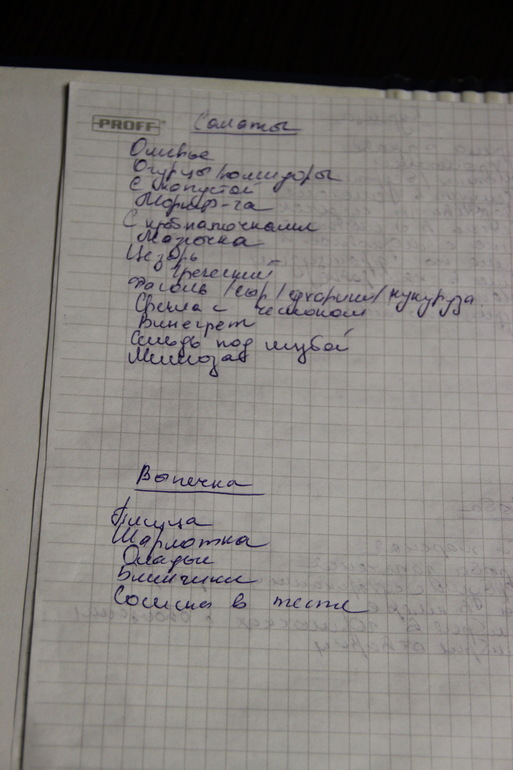 PROFF
Салаты
Оливье
Огурцы/помидоры
С капустой
Морков-ча
С краб.палочками
Мазочка
Цезарь
Греческий
Фасоль/сыр/сухарики/кукуруза
Свекла с чесноком
Винегрет
Сельдь под шубой
Мимоза
Выпечка
Пицца
Шарлотка
Оладьи
Блинчики
Сосиска в тесте